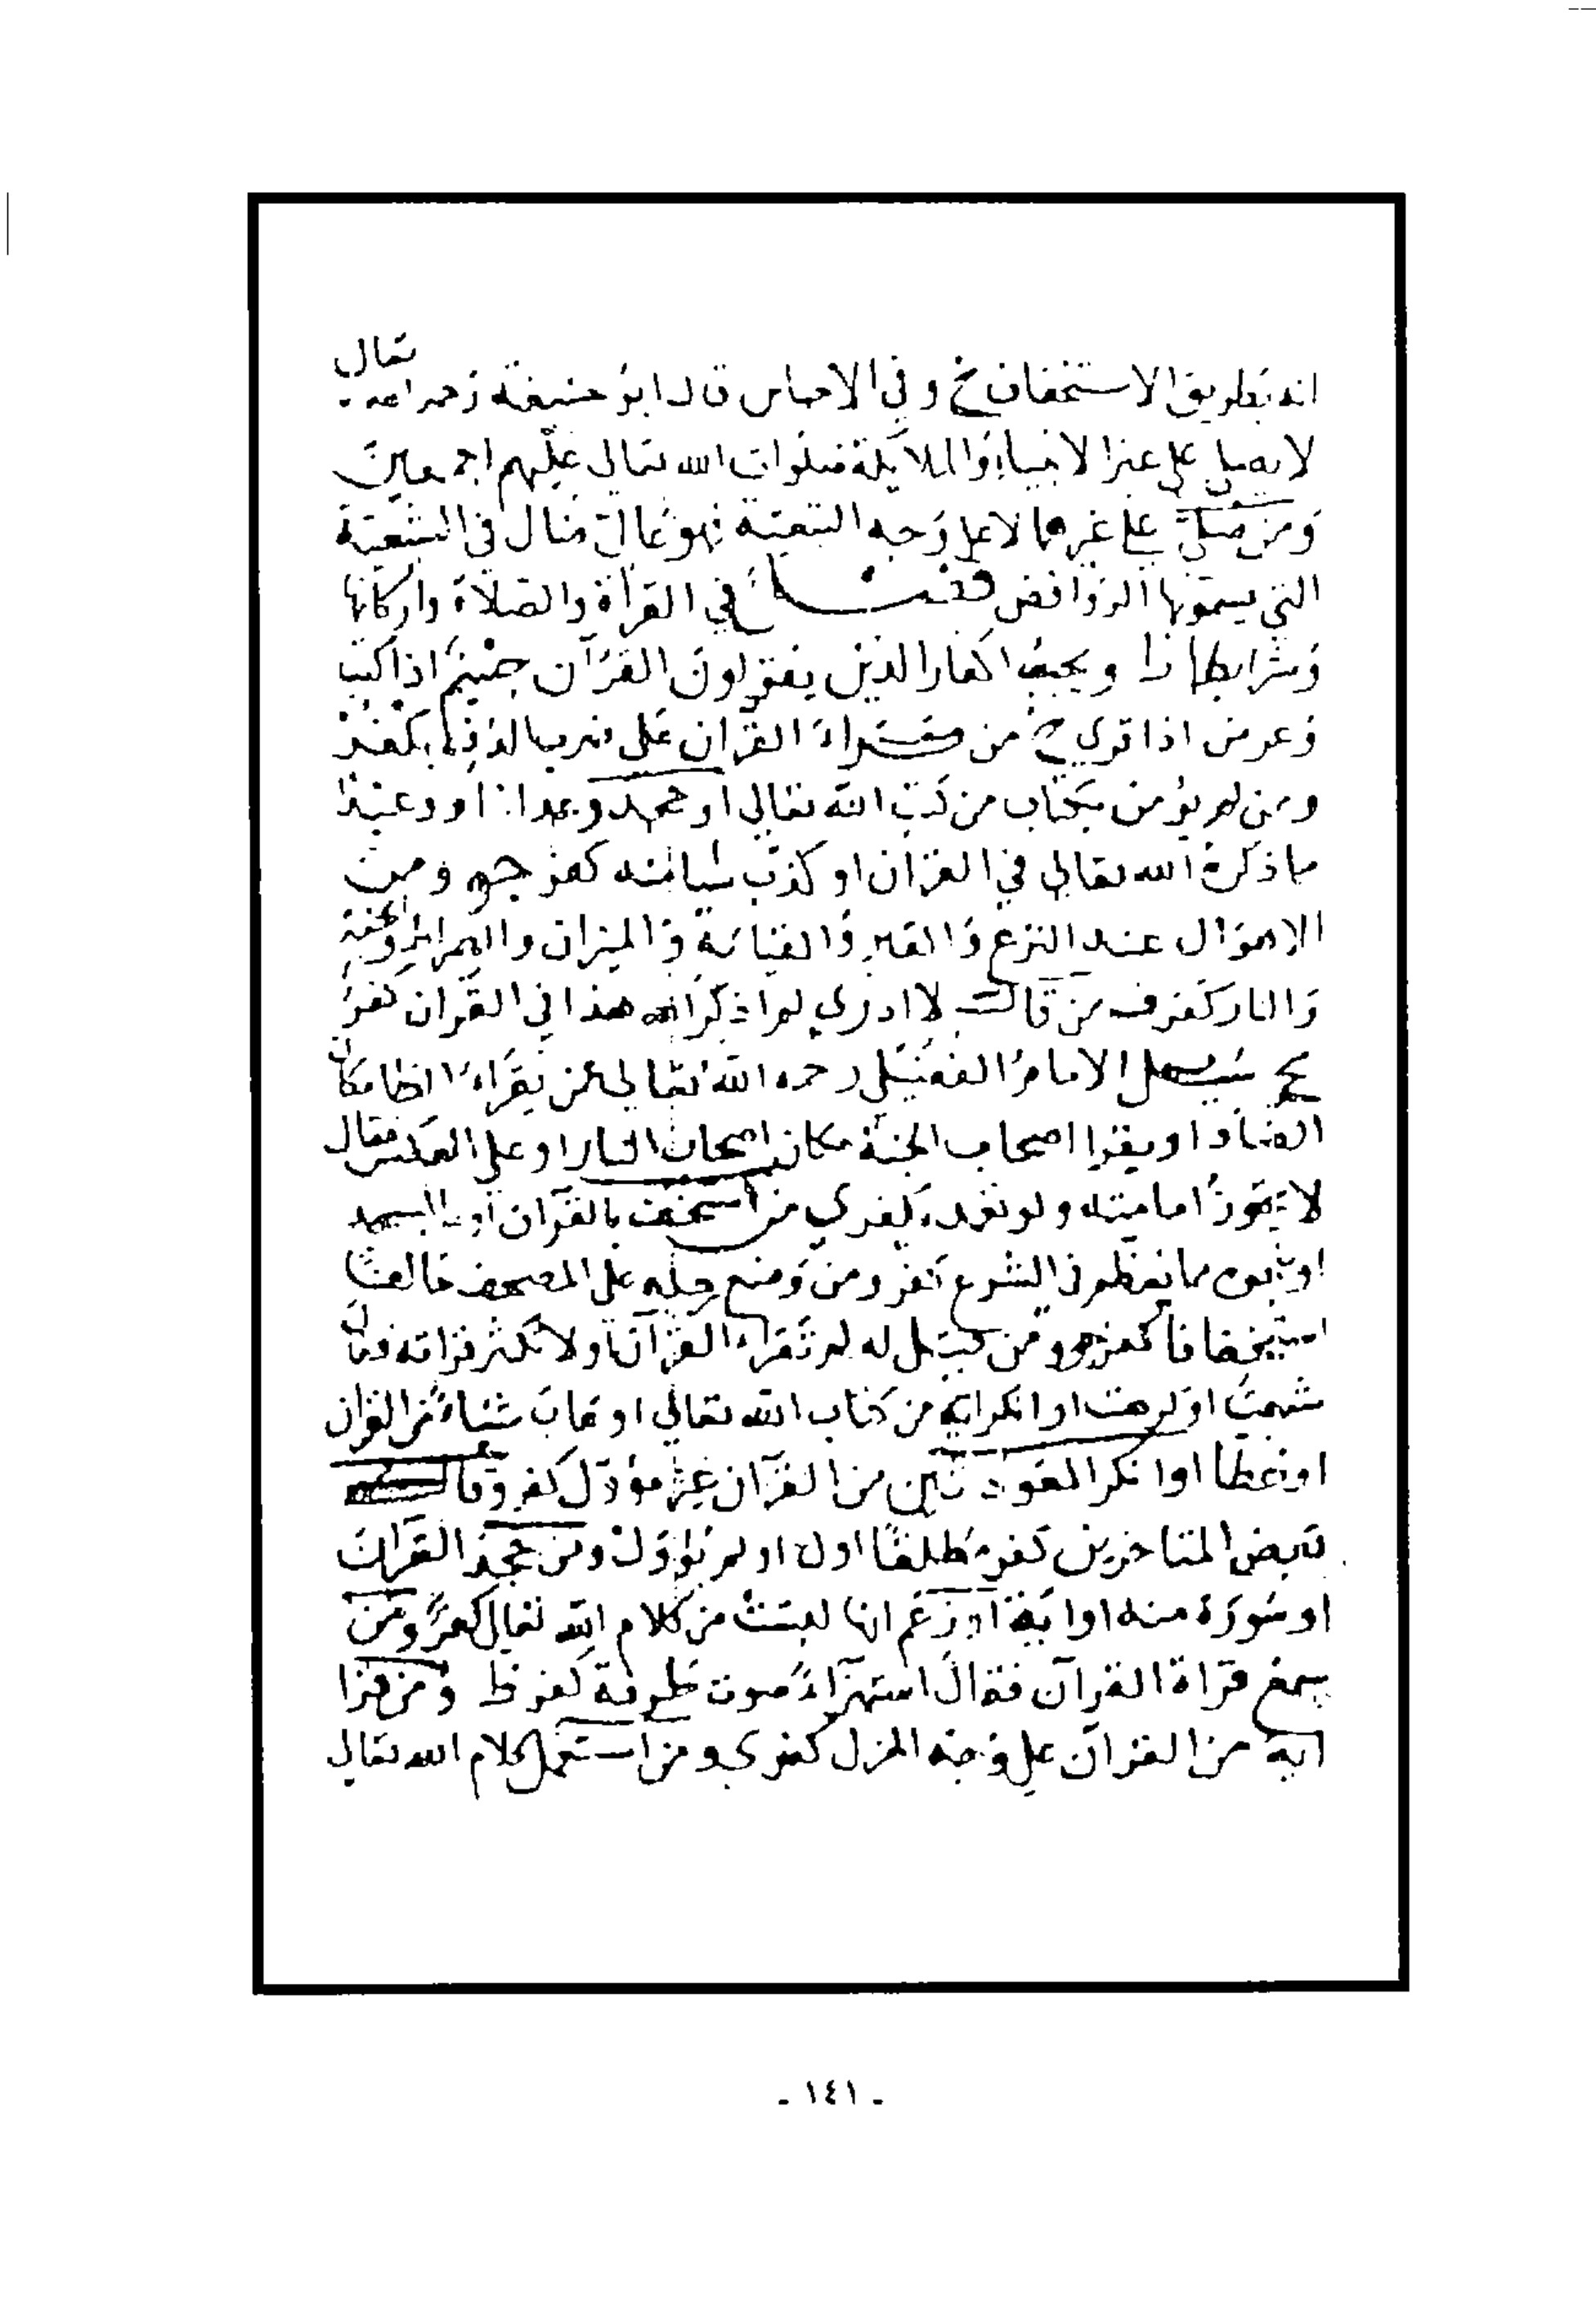 انه بطريق الاستخفاف خ وفي الاجناس قال ابو حنيفة رحمه الله تعالى
لا يصلي على غير الانبياء والملائكة صلوات الله تعالى عليهم اجمعين
ومن صلى على غيرهما لا على وجه التبعية فهو غال في الشيعة
التي يسمونها الروافض فصل في القراة والصلاة واركانها
وشرايطها ويجب اكفار الذين يقولون القرآن جسم اذا كتب
وعرض اذا قري خ من قراء القران على ضرب الدف يكفر
ومن لم يؤمن بكتاب من كتب الله تعالى او جحد وعدا او وعيدا
ما ذكره الله تعالى في القران او كذب شيا منه كفر ومن
الاهوال عند النزع والقبر والقيامة والميزان والصراط والجنة
والنار كفر من قال لا ادري لم ذكر الله هذا في القران كفر
سيل الامام الفضيلي رحمه الله تعالى عن يقراء الظا مكان
الضاد او يقرا اصحاب الجنة مكان اصحاب النار او على العكس فقال
لا تجوز امامته ولو تعمد يكفر من استخف بالقرآن او بالمسجد
او بنحوه مما يعظم في الشرع كفر ومن وضع رجله على المصحف حالفا
استخفافا كفر ومن قيل له لم تقراء القرآن او لا تكثر قراته فقال
شبعت او كرهت او انكر اية من كتاب الله تعالى او عاب شياء من القران
او خطا او انكر المعوذتين من القرآن غير مؤول كفر وقال
بعض المتاخرين كفر مطلقا اول او لم يؤول ومن جحد القرآن
او سورة منه او اية او زعم انها ليست من كلام الله تعالى كفر ومن
سمع قراة القرآن فقال استهزاء صوت طرفة كفر ومن قرا
اية من القرآن على وجه الهزل كفر ومن استعمل كلام الله تعالى
- ١٤١ -